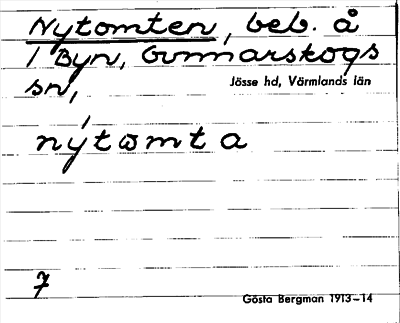 Nytomten, beb. å
1 Byn, Gunnarskogs
sn,
Jösse hd, Värmlands län
nýtωmta
7
Gösta Bergman 1913–14